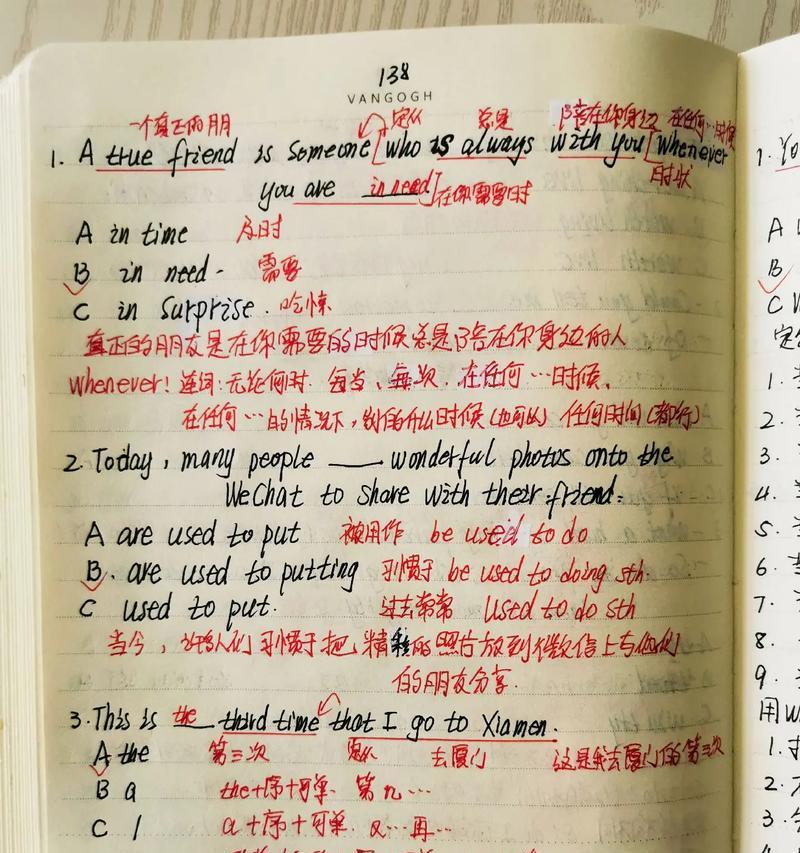 138
VANGOGH
一个真正的朋 定从 总是 陪在你身边 在任何…时候
1. A true friend is someone [who is always with you [whenever
时状
you are in need] 在你需要时
A in time 及时
B in need - 需要
C in surprise. 吃惊
真正的朋友是在你需要的时候总是陪在你身边的人
whenever! 连词:无论何时. 每当、每次. 在任何…时候.
在任何…的情况下, 别的什么时候(也可以) 任何时间(都行)
2. Today, many people ____ wonderful photos onto the
WeChat to share with their friend.
A are used to put 被用作 be used to do
B. are used to putting 习惯于 be used to doing sth.
C used to put. 过去常常 used to do sth
当今, 许多人们习惯于把精彩的照片放到微信上与他们
的朋友分享.
3. This is the third time that I go to Xiamen.
A the 第三次 定从 去厦门 这是我去厦门的第三次
B a the+序+可单. 第几…
C / a+序+可单. 又…再…
1. Yo
A
B
C W
定
1.
2.
3.
4.
5.
6.
7.
8.
9.
用W
1.
2.
3.